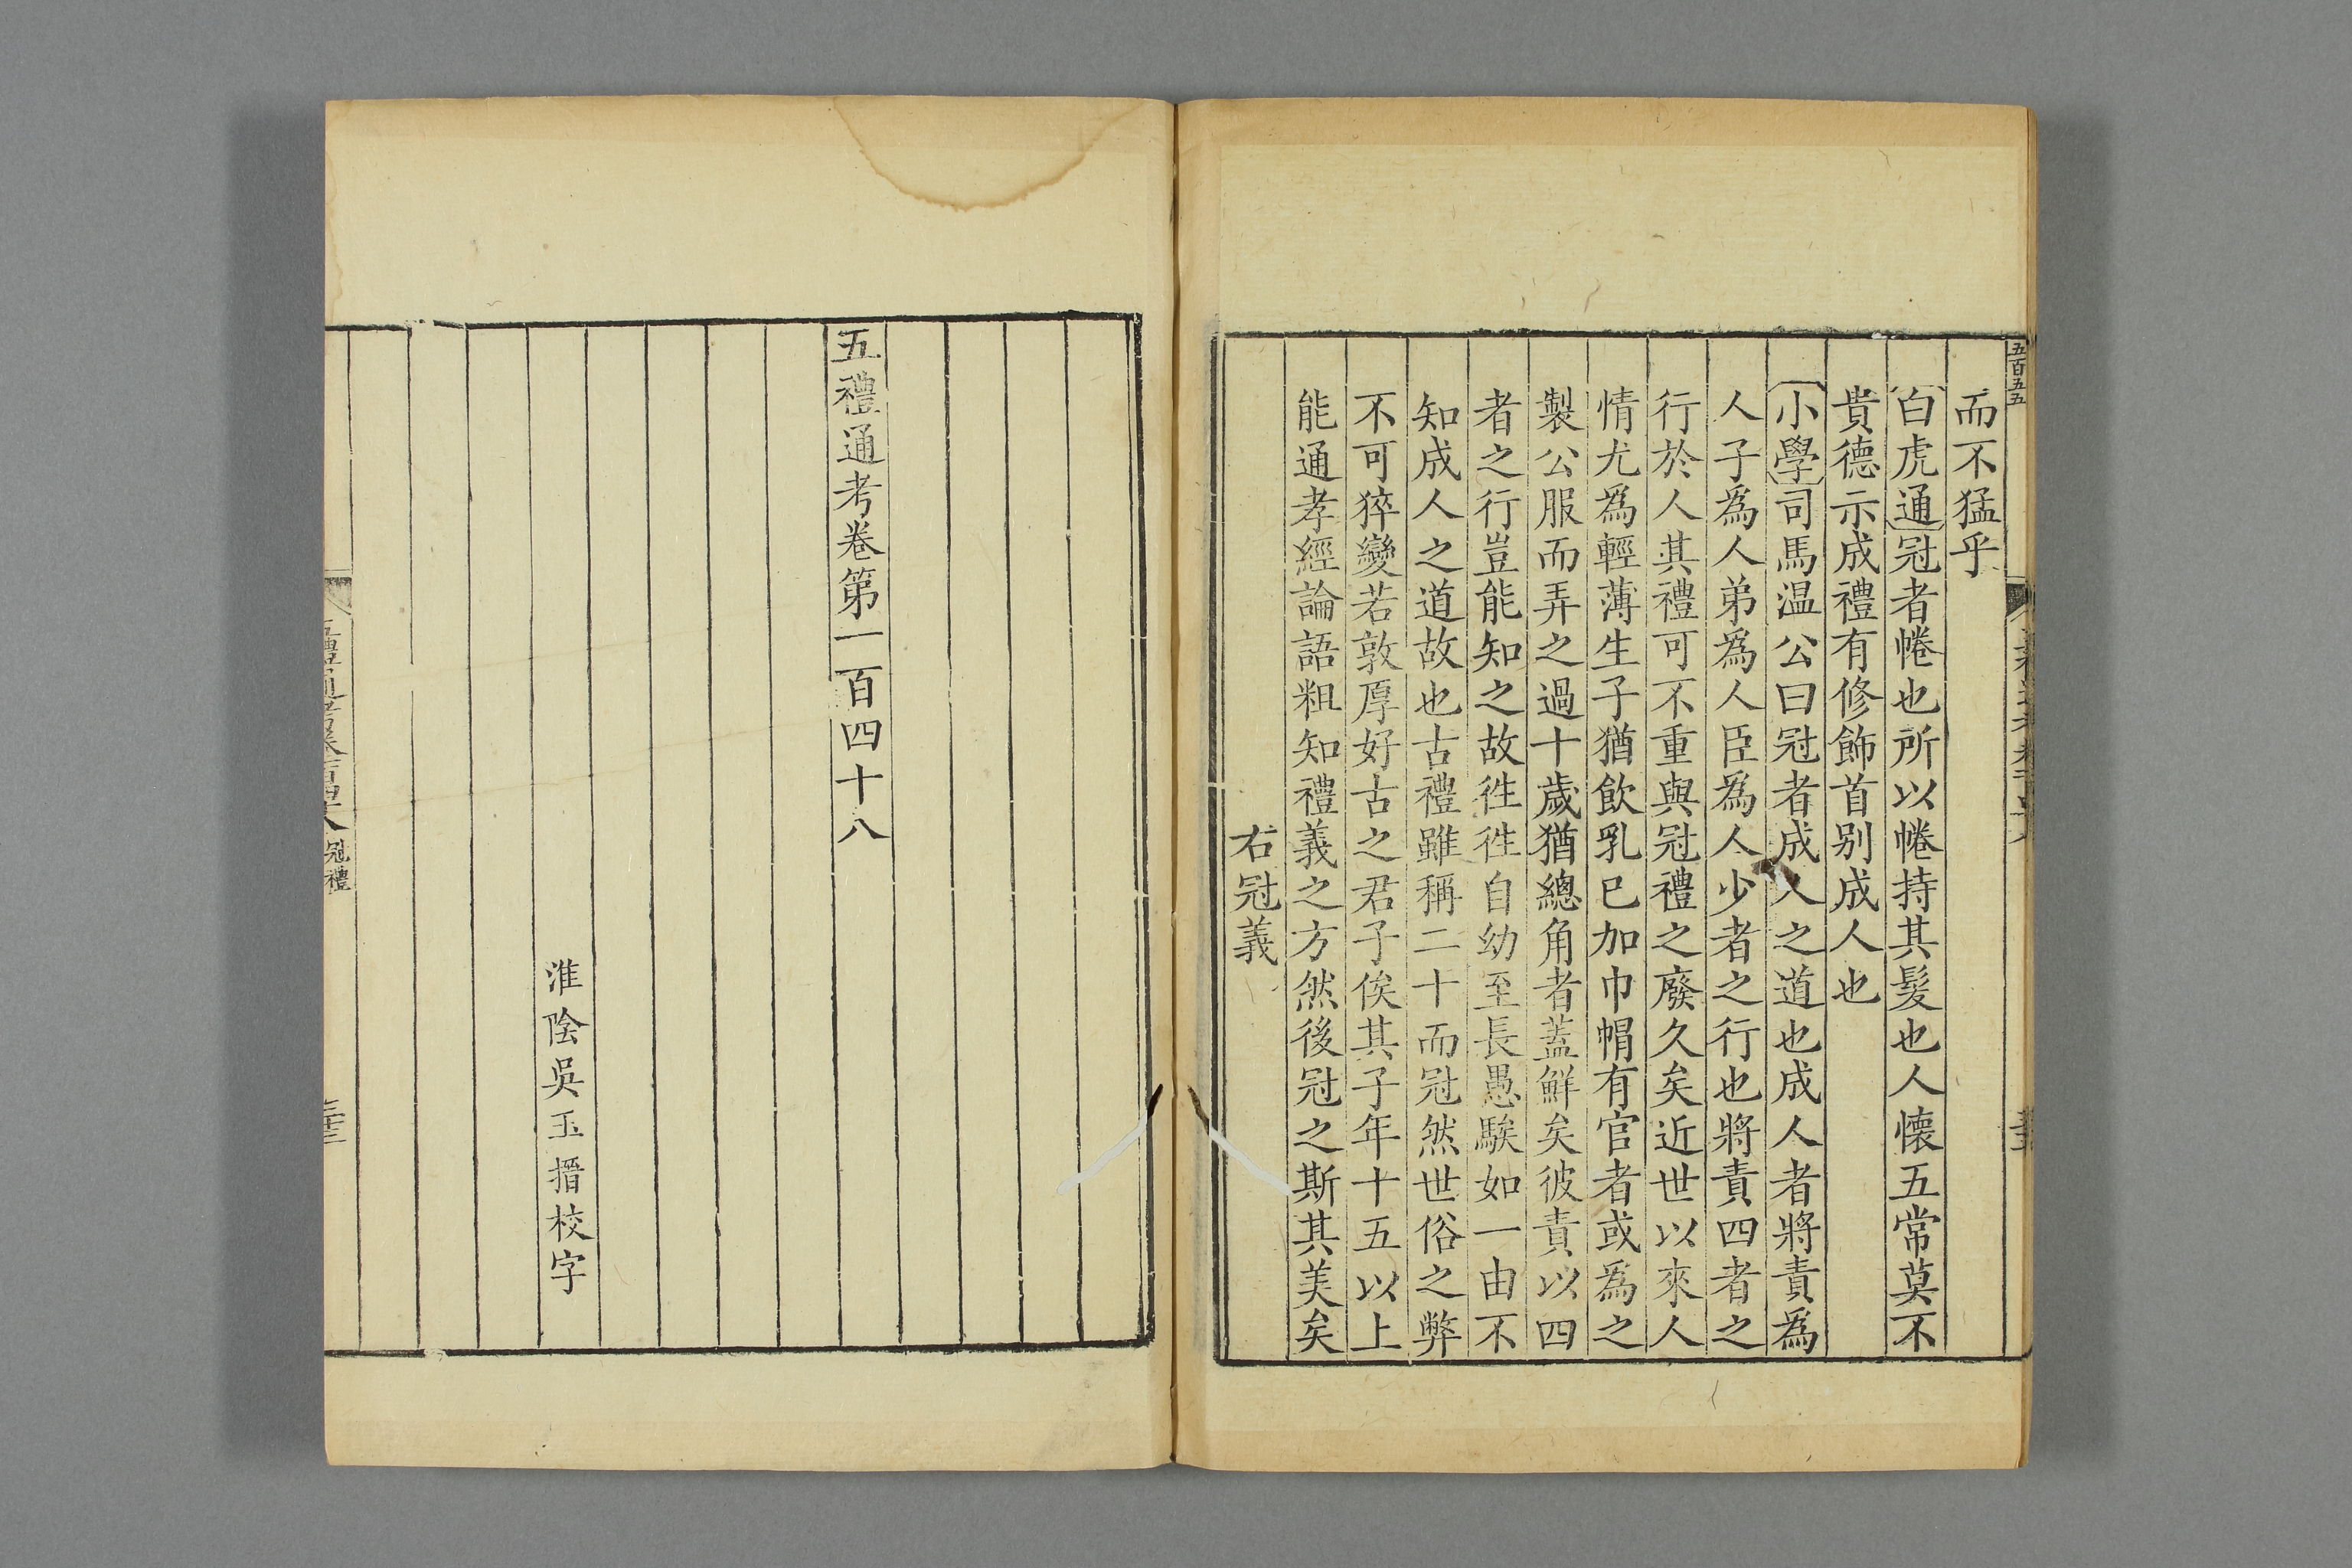 五百五五
而不猛乎
白虎通冠者㡡也所以㡡持其髮也人懷五常莫不
貴德示成禮有修飾首别成人也
小學司馬温公曰冠者成人之道也成人者將責爲
人子爲人弟爲人臣爲人少者之行也將責四者之
行於人其禮可不重與冠禮之廢久矣近世以來人
情尤爲輕薄生子猶飲乳已加巾帽有官者或爲之
製公服而弄之過十歲猶總角者蓋鮮矣彼責以四
者之行豈能知之故徃徃自幼至長愚騃如一由不
知成人之道故也古禮雖稱二十而冠然世俗之弊
不可猝變若敦厚好古之君子俟其子年十五以上
能通孝經論語粗知禮義之方然後冠之斯其美矣
右冠義
五禮通考卷第一百四十八
淮陰吳玉搢校字
冠禮